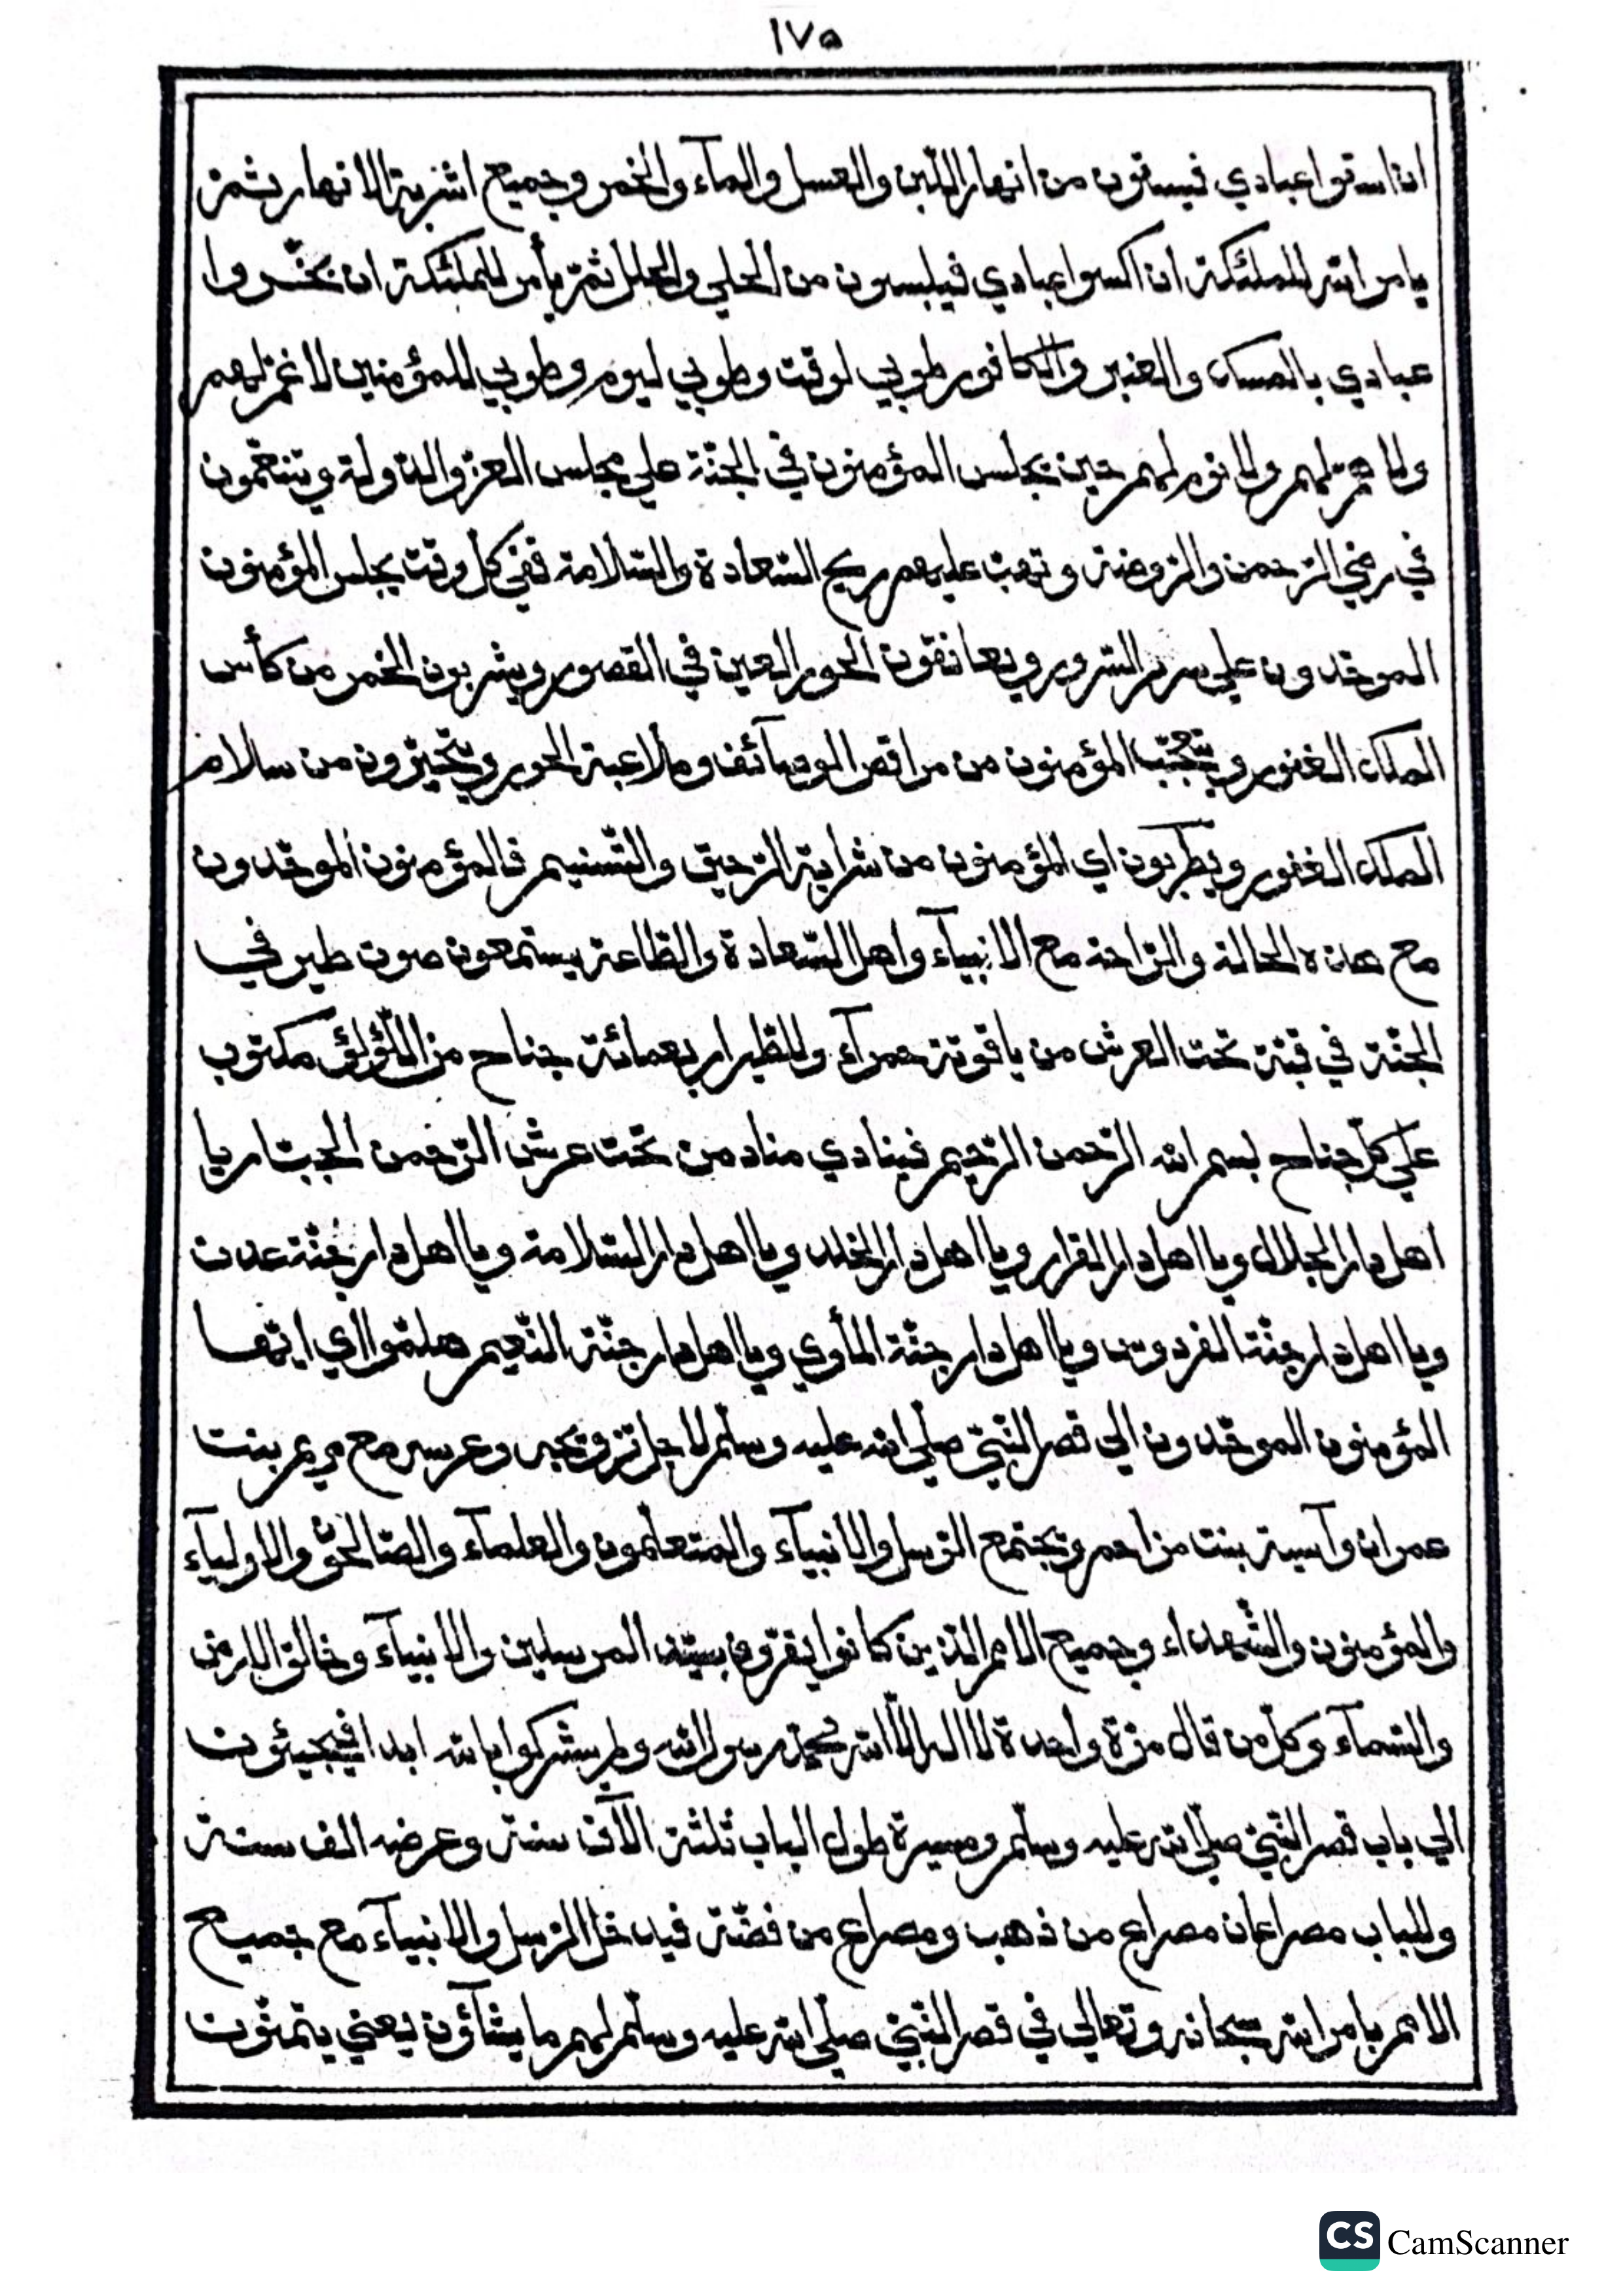 ١٧٥
ان اسقوا عبادي فيسقون من انهار اللبن والعسل والمآء والخمر وجميع اشربة الانهار ثمّ
يامر الله للملئكة ان اكسوا عبادي فيلبسون من الحلي والحلل ثمّ يأمر للملئكة ان بخّروا
عبادي بالمسك والعنبر والكافور طوبي لوقت وطوبي ليوم وطوبي للمؤمنين لا غمّ لهم
ولا همّ لهم ولا نوم لهم حين يجلس المؤمنون في الجنّة علي مجلس العزّ والدّولة ويتنعّمون
في رضي الرّحمن والرّوضة وتهبّ عليهم ريح السّعادة والسّلامة ففي كلّ وقت يجلس المؤمنون
الموحّدون علي سرير السّرور ويعانقون الحور العين في القصور ويشربون الخمر من كأس
الملك الغفور ويتعجّب المؤمنون من مراقص الوصآئف وملاعبة الحور ويتحيّرون من سلام
الملك الغفور ويطربون اي المؤمنون من شرابة الرّحيق والتّسنيم فالمؤمنون الموحّدون
مع هذه الحالة والرّاحة مع الانبيآء واهل السّعادة والطّاعة يستمعون صوت طير في
الجنّة في قبّة تحت العرش من ياقوتة حمرآء وللطّير اربعمائة جناح من اللّؤلؤ مكتوب
علي كلّ جناح بسم الله الرّحمن الرّحيم فينادي مناد من تحت عرش الرّحمن الجبّار يا
اهل دار الجلال ويا اهل دار القرار ويا اهل دار الخلد ويا اهل دار السّلامة ويا اهل دار جنّة عدن
ويا اهل دار جنّة الفردوس ويا اهل دار جنّة المأوي ويا اهل دار جنّة النّعيم هلمّوا اي ايّها
المؤمنون الموحّدون الي قصر النّبيّ صلّي الله عليه وسلّم لاجل تزويجه وعرسه مع مريم بنت
عمران وآسية بنت مزاحم ويجتمع الرّسل والانبيآء والمتعلّمون والعلمآء والصّالحون والاوليآء
والمؤمنون والشّهداء وجميع الامم الّذين كانوا يقرّون بسيّد المرسلين والانبيآء وخالق الارض
والسّمآء وكلّ من قال مرّة واحدة لا اله الّا الله محمّد رسول الله ولم يشركوا بالله ابدا فيجيئون
الي باب قصر النّبيّ صلّي الله عليه وسلّم ومسيرة طول الباب ثلثة الآف سنة وعرضه الف سنة
وللباب مصراعان مصراع من ذهب ومصراع من فضّة فيدخل الرّسل والانبيآء مع جميع
الامم بامر الله سبحانه وتعالي في قصر النّبيّ صلّي الله عليه وسلّم لهم ما يشآؤن يعني يتمنّون
CS CamScanner